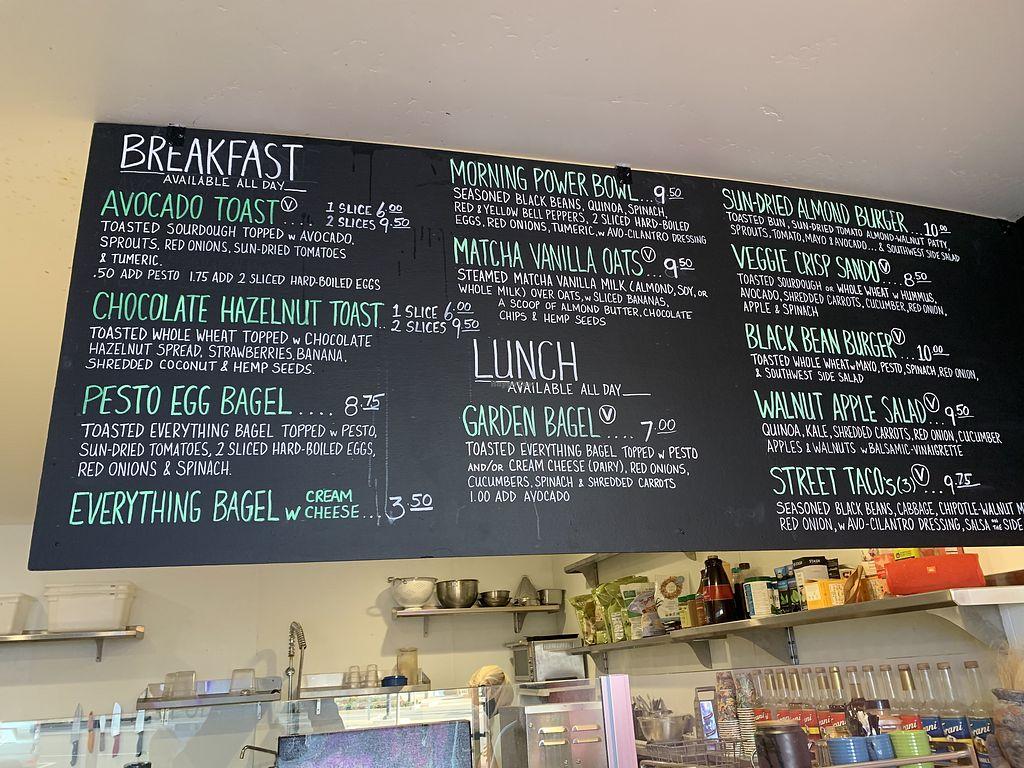 BREAKFAST
AVAILABLE ALL DAY
AVOCADO TOAST Ⓥ ... 1 SLICE 6.00
2 SLICES 9.50
TOASTED SOURDOUGH TOPPED w AVOCADO,
SPROUTS, RED ONIONS, SUN-DRIED TOMATOES
& TUMERIC.
.50 ADD PESTO 1.75 ADD 2 SLICED HARD-BOILED EGGS
CHOCOLATE HAZELNUT TOAST 1 SLICE 6.00
2 SLICES 9.50
TOASTED WHOLE WHEAT TOPPED w CHOCOLATE
HAZELNUT SPREAD, STRAWBERRIES, BANANA,
SHREDDED COCONUT & HEMP SEEDS.
PESTO EGG BAGEL .... 8.75
TOASTED EVERYTHING BAGEL TOPPED w PESTO,
SUN-DRIED TOMATOES, 2 SLICED HARD-BOILED EGGS,
RED ONIONS & SPINACH.
EVERYTHING BAGEL w CREAM CHEESE... 3.50
MORNING POWER BOWL... 9.50
SEASONED BLACK BEANS, QUINOA, SPINACH,
RED & YELLOW BELL PEPPERS, 2 SLICED HARD-BOILED
EGGS, RED ONIONS, TUMERIC, w AVO-CILANTRO DRESSING
MATCHA VANILLA OATS Ⓥ . 9.50
STEAMED MATCHA VANILLA MILK (ALMOND, SOY, OR
WHOLE MILK) OVER OATS, w SLICED BANANAS,
A SCOOP OF ALMOND BUTTER, CHOCOLATE
CHIPS & HEMP SEEDS
LUNCH
AVAILABLE ALL DAY
GARDEN BAGEL Ⓥ .... 7.00
TOASTED EVERYTHING BAGEL TOPPED w PESTO
AND/OR CREAM CHEESE (DAIRY), RED ONIONS,
CUCUMBERS, SPINACH & SHREDDED CARROTS
1.00 ADD AVOCADO
SUN-DRIED ALMOND BURGER... 10.00
TOASTED BUN, SUN-DRIED TOMATO ALMOND-WALNUT PATTY,
SPROUTS, TOMATO, MAYO & AVOCADO... & SOUTHWEST SIDE SALAD
VEGGIE CRISP SANDO Ⓥ . 8.50
TOASTED SOURDOUGH OR WHOLE WHEAT w HUMMUS,
AVOCADO, SHREDDED CARROTS, CUCUMBER, RED ONION,
APPLE & SPINACH
BLACK BEAN BURGER Ⓥ .. 10.00
TOASTED WHOLE WHEAT w MAYO, PESTO, SPINACH, RED ONION,
& SOUTHWEST SIDE SALAD
WALNUT APPLE SALAD Ⓥ 9.50
QUINOA, KALE, SHREDDED CARROTS, RED ONION, CUCUMBER
APPLES & WALNUTS w BALSAMIC-VINAIGRETTE
STREET TACO's (3) Ⓥ .. 9.75
SEASONED BLACK BEANS, CABBAGE, CHIPOTLE-WALNUT M
RED ONION, w AVO-CILANTRO DRESSING, SALSA ON THE SIDE